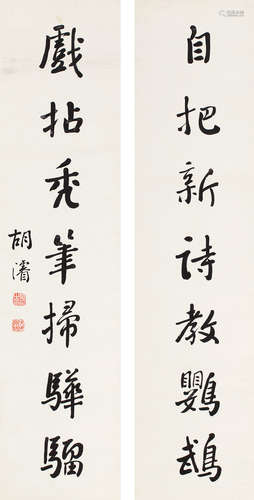 自把新詩教鸚鵡
戲拈禿筆掃驊騮
胡濬